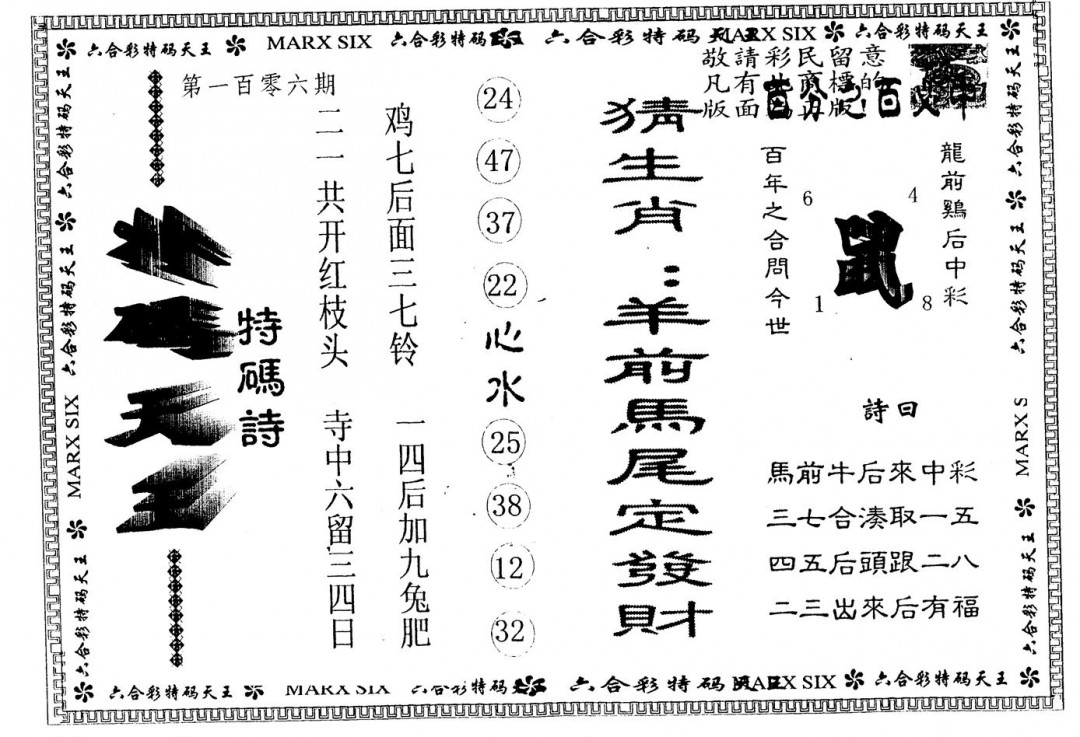 六合彩特码天王 MARX SIX 六合彩特码 六合彩特码天王 MARX SIX 六合彩特码天王
敬請彩民留意
凡有此商標的
版面 正版
龍前鷄后中彩
4
6
鼠
8
1
百年之合問今世
詩曰
馬前牛后來中彩
三七合湊取一五
四五后頭跟二八
二三出來后有福
猜生肖：羊前馬尾定發財
24
47
37
22
心水
25
38
12
32
鸡七后面三七铃 一四后加九兔肥
二一共开红枝头 寺中六留三四日
第一百零六期
特碼詩
天王
六合彩特码天王
六合彩特码天王
MARX SIX
六合彩特码天王
六合彩特码天王
六合彩特码天王
MARX S
六合彩特码天王
六合彩特码天王 MARX SIX 六合彩特码 六合彩特码 MARX SIX 六合彩特码天王